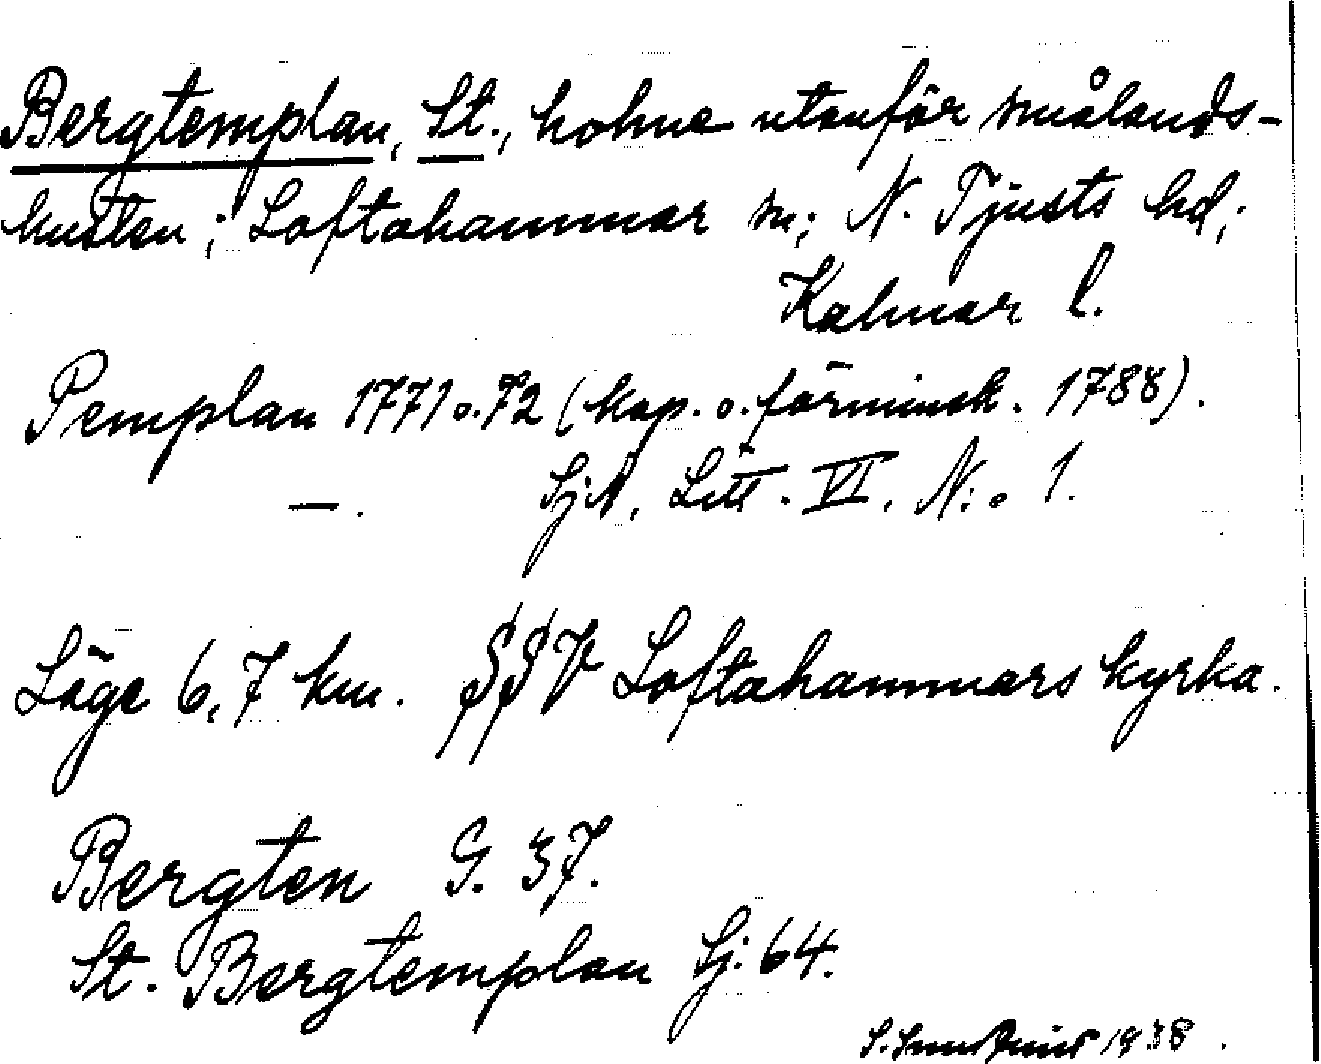 Bergtemplan, St., holme utanför smålands-
kusten; Loftahammar sn; N. Tjusts hd;
Kalmar l.
Pemplan 1771 o. 72 (kop. o. förminsk. 1788).
—. SjA, Litt. VI. N:o 1.
Läge 6,7 km. SSV Loftahammars kyrka.
Bergten G. 37.
St. Bergtemplan Sj. 64.
1938.